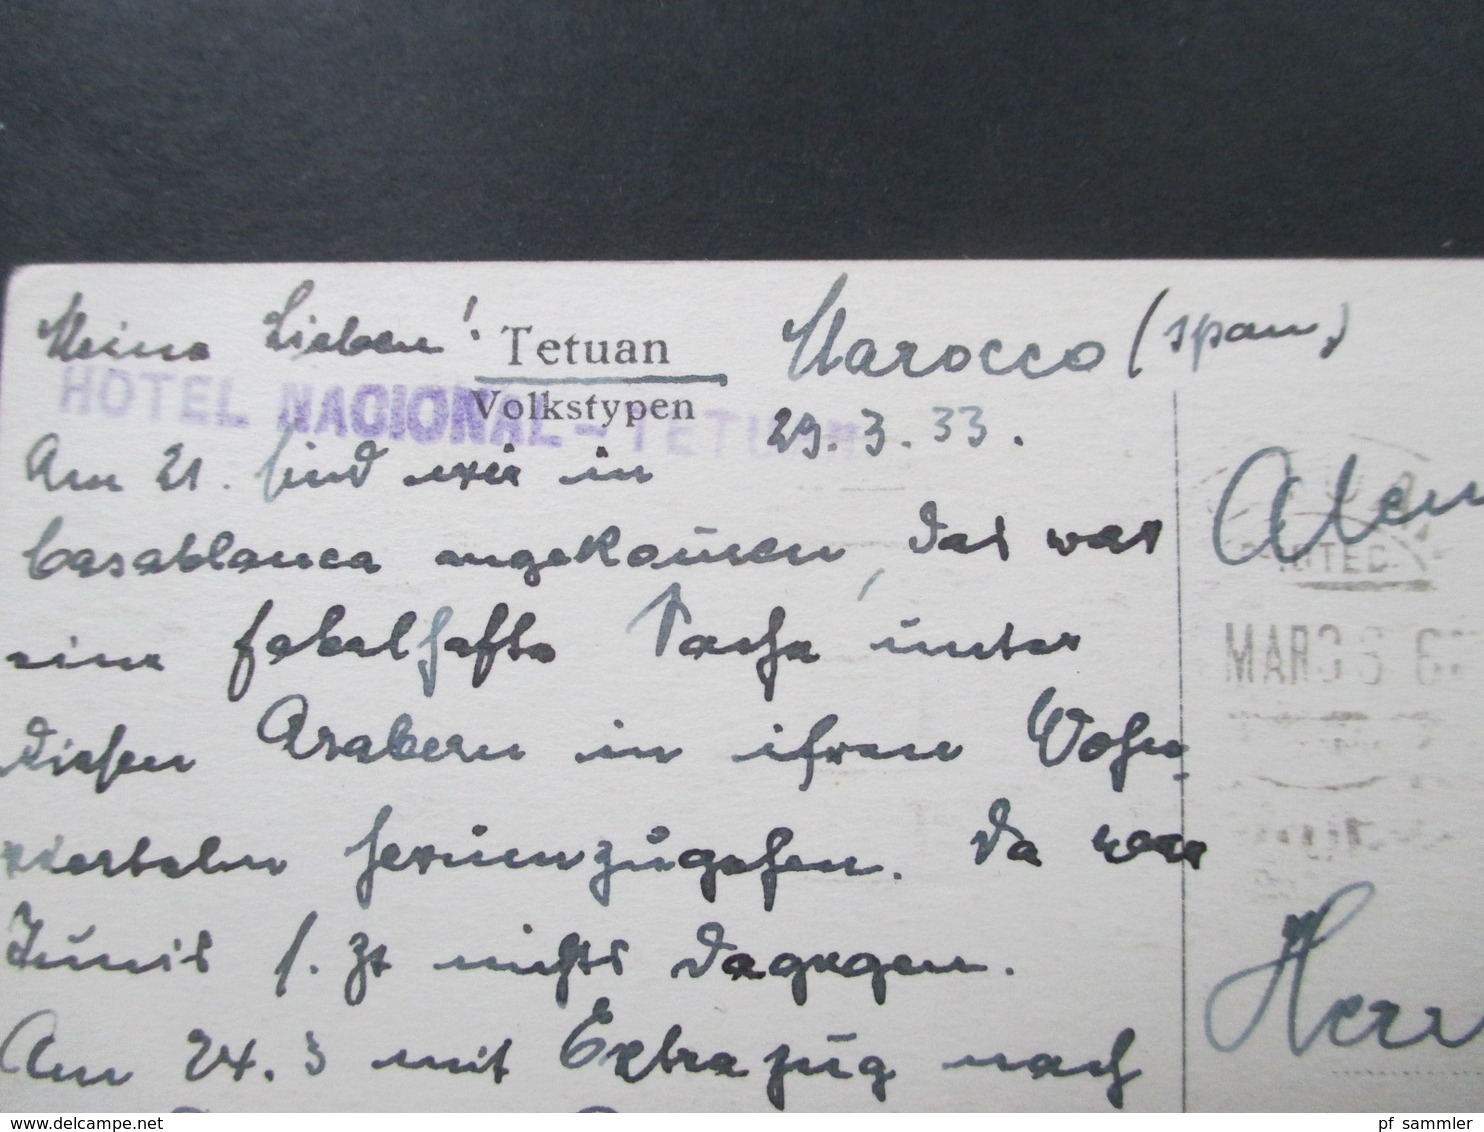 Meine Lieben! Tetuan Marocco (span.)
HOTEL NACIONAL - TETUAN
Volkstypen
29.3.33.
Am 21. sind wir in
Casablanca angekommen, das war
eine fabelhafte Sache unter
diesen Arabern in ihren Wohn-
vierteln herumzugehen. Da war
Tunis s. Zt nichts dagegen.
Am 24.3 mit Extrazug nach
Herr
MAR
delcampe.net
pf_sammler